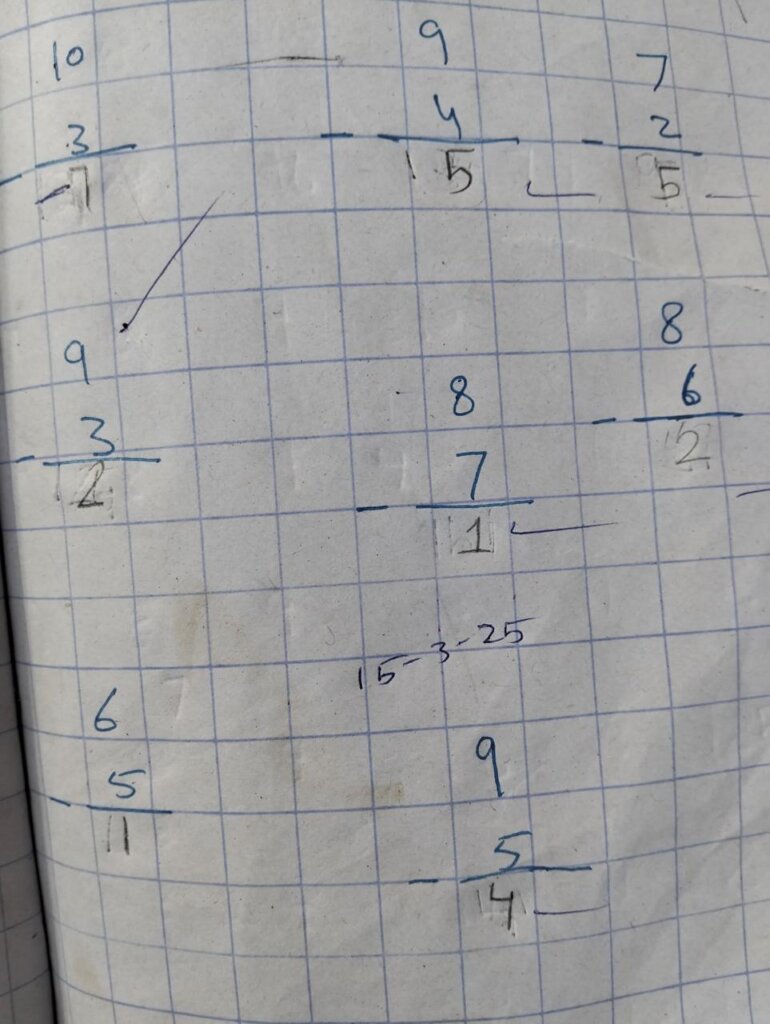 10 9 7
- 3 - 4 - 2
7 5 5
9 8 8
- 3 - 7 - 6
2 1 2
15-3-25
6 9
- 5 - 5
1 4